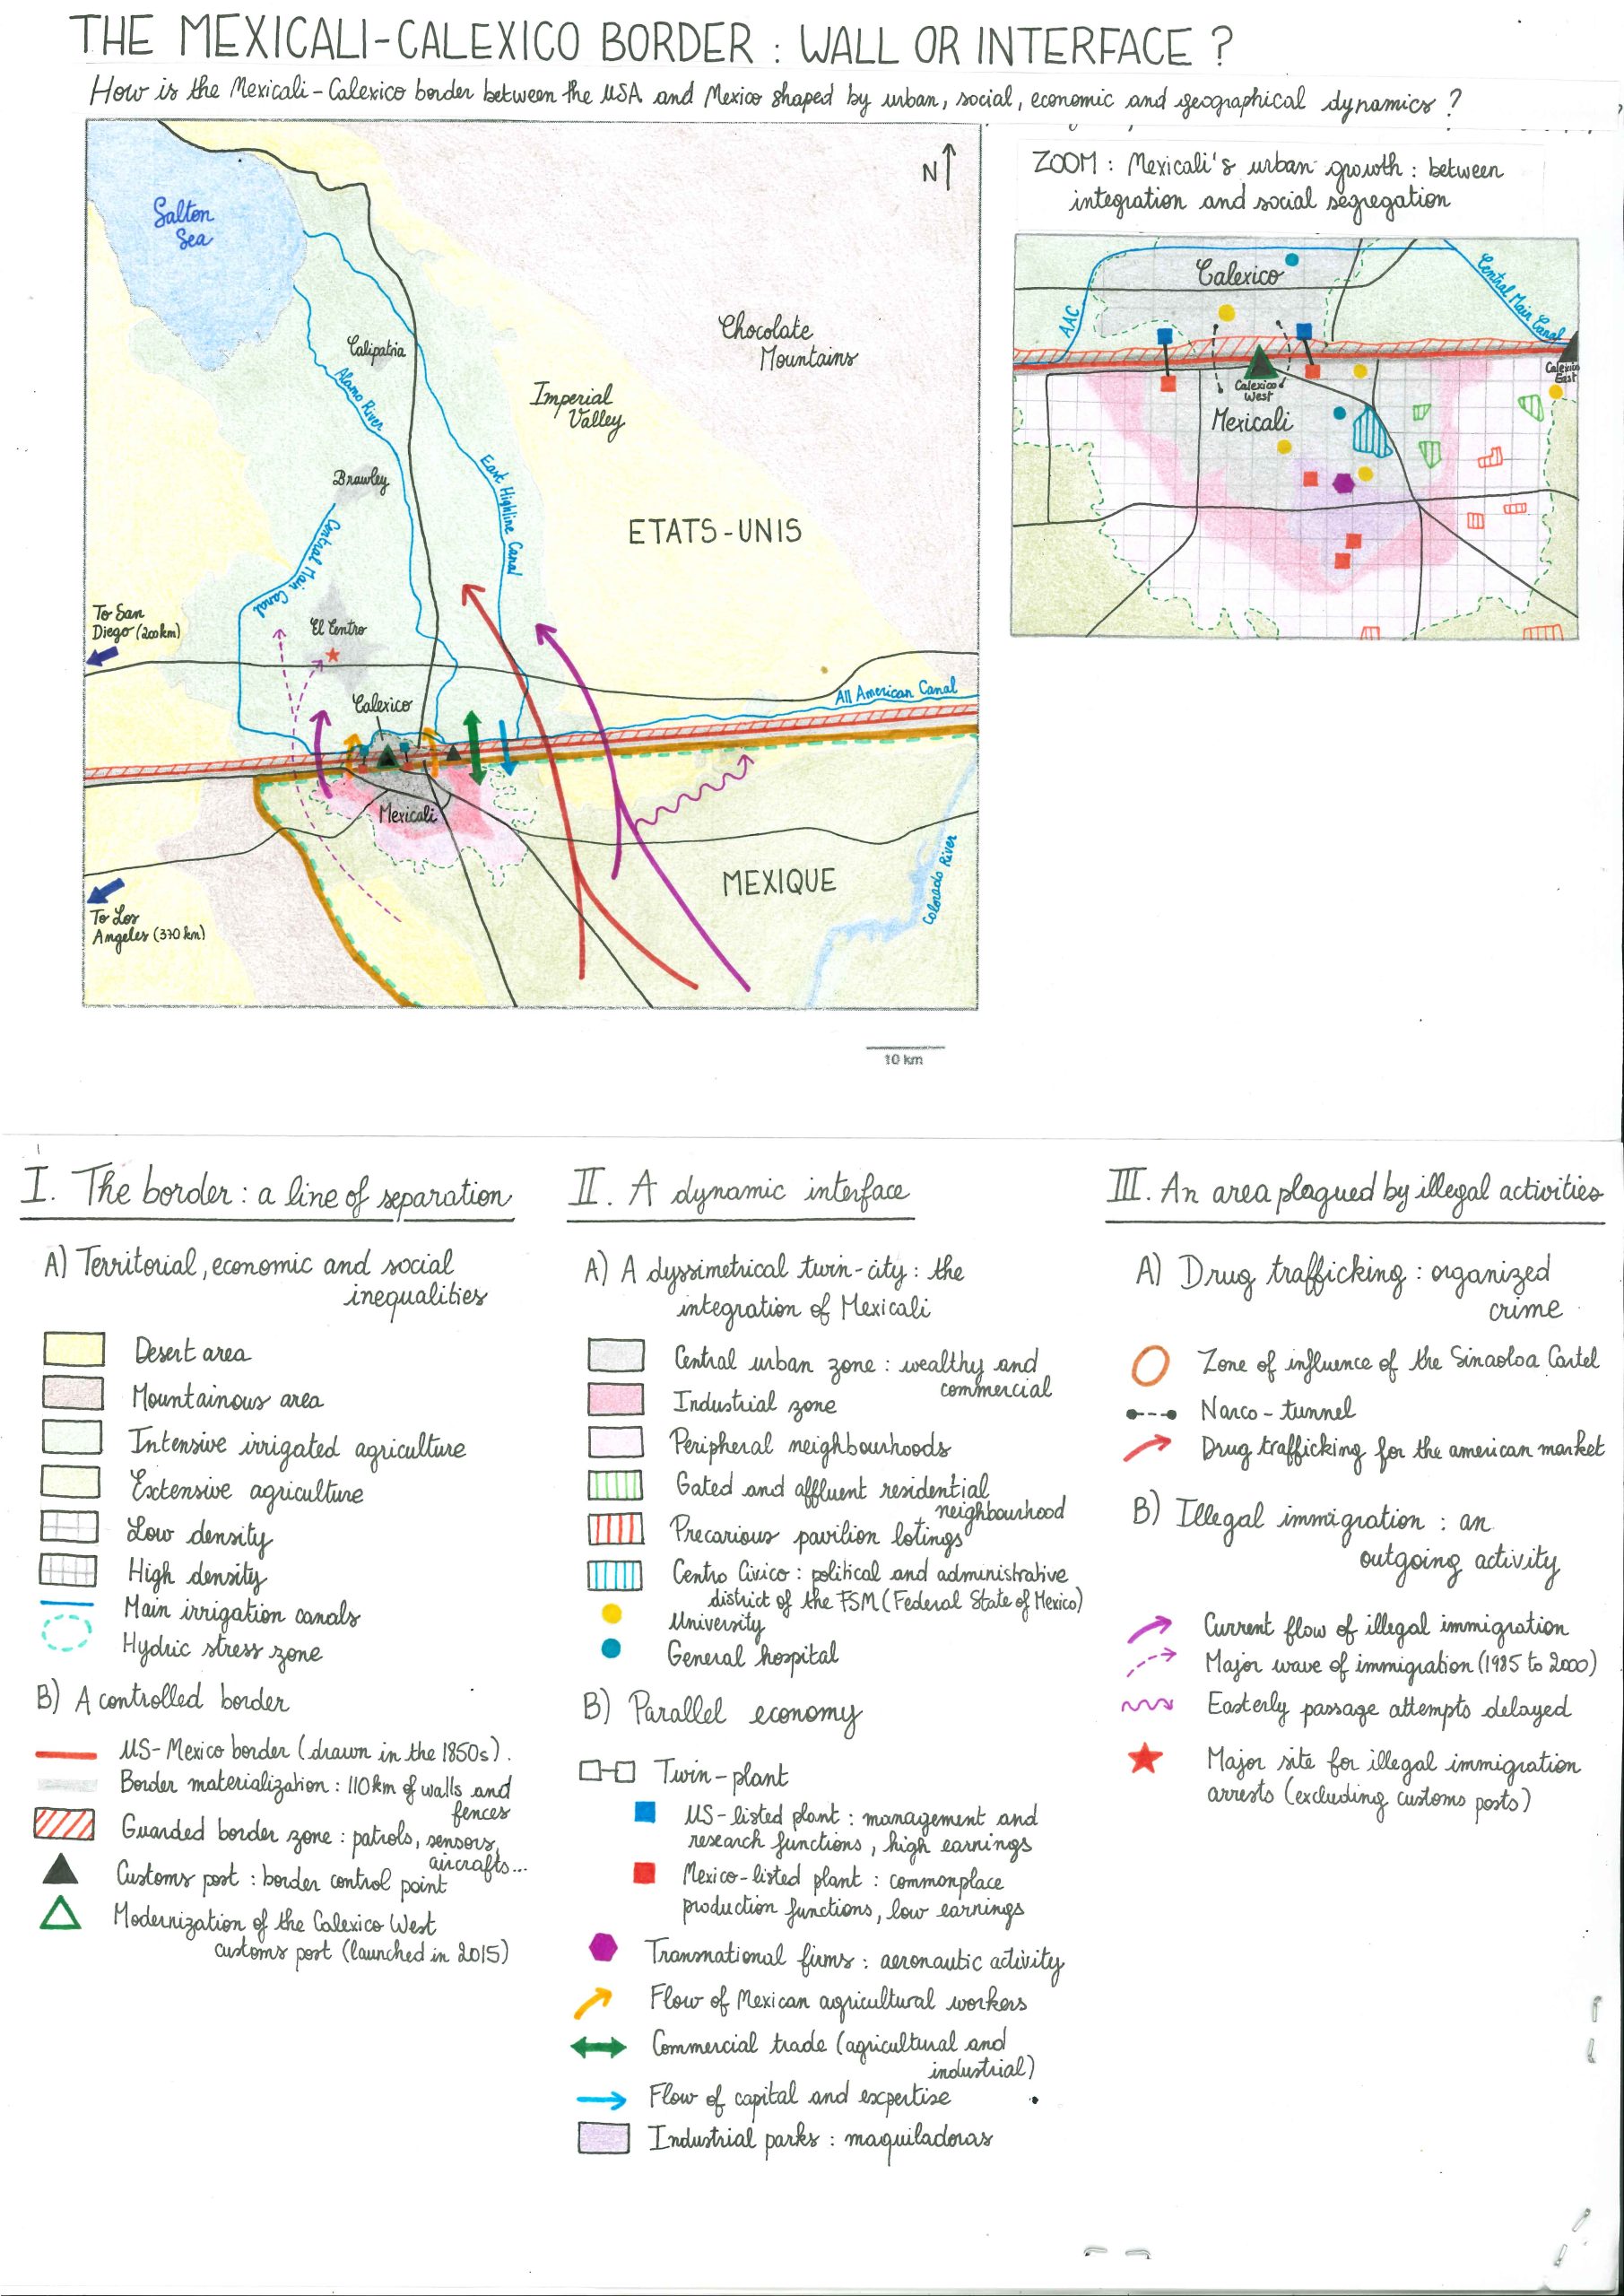 THE MEXICALI-CALEXICO BORDER : WALL OR INTERFACE ?
How is the Mexicali-Calexico border between the USA and Mexico shaped by urban, social, economic and geographical dynamics ?
N
Salton
Sea
Chocolate
Mountains
Calipatria
Imperial
Valley
Alamo River
Brawley
East Highline Canal
ETATS-UNIS
Central Main Canal
To San
Diego (200km)
El Centro
Calexico
All American Canal
Mexicali
MEXIQUE
Colorado River
To Los
Angeles (370 km)
10 km
ZOOM : Mexicali's urban growth : between
integration and social segregation
Calexico
AAC
Central Main Canal
Calexico
West
Calexico
East
Mexicali
I. The border : a line of separation
A) Territorial, economic and social
inequalities
Desert area
Mountainous area
Intensive irrigated agriculture
Extensive agriculture
Low density
High density
Main irrigation canals
Hydric stress zone
B) A controlled border
US-Mexico border (drawn in the 1850s).
Border materialization : 110 km of walls and
fences
Guarded border zone : patrols, sensors,
aircrafts...
Customs post : border control point
Modernization of the Calexico West
customs post (launched in 2015)
II. A dynamic interface
A) A dyssimetrical twin-city : the
integration of Mexicali
Central urban zone : wealthy and
commercial
Industrial zone
Peripheral neighbourhoods
Gated and affluent residential
neighbourhood
Precarious pavilion lotings
Centro Civico : political and administrative
district of the FSM (Federal State of Mexico)
University
General hospital
B) Parallel economy
Twin-plant
US-listed plant : management and
research functions, high earnings
Mexico-listed plant : commonplace
production functions, low earnings
Transnational firms : aeronautic activity
Flow of Mexican agricultural workers
Commercial trade (agricultural and
industrial)
Flow of capital and expertise
Industrial parks : maquiladoras
III. An area plagued by illegal activities
A) Drug trafficking : organized
crime
Zone of influence of the Sinaoloa Cartel
Narco-tunnel
Drug trafficking for the american market
B) Illegal immigration : an
outgoing activity
Current flow of illegal immigration
Major wave of immigration (1985 to 2000)
Easterly passage attempts delayed
Major site for illegal immigration
arrests (excluding customs posts)